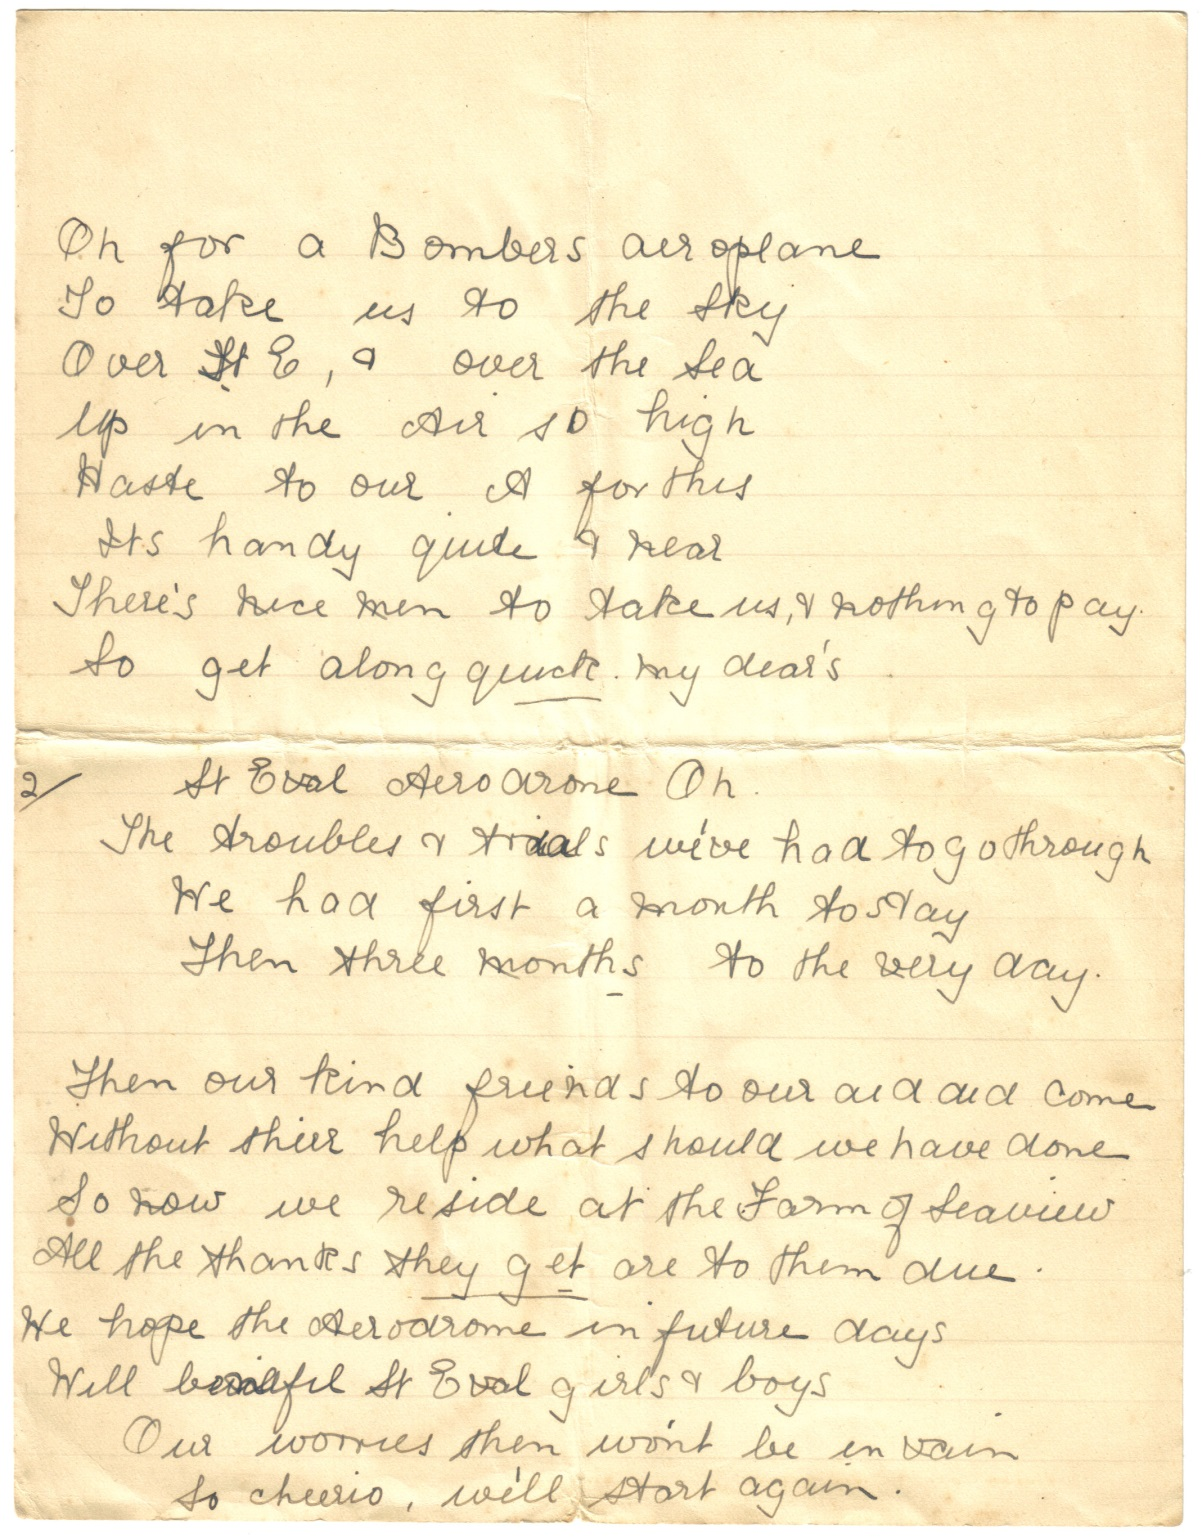 Oh for a Bombers aeroplane
To take us to the sky
Over St E, & over the sea
Up in the Air so high
Haste to our A for this
Its handy quite & near
There's nice men to take us, & nothing to pay.
So get along quick. my dear's
2/ St Eval Aerodrone Oh.
The troubles & trials we've had to go through
We had first a month to stay
Then three months to the very day.
Then our kind friends to our aid did come
Without thier help what should we have done
So now we reside at the Farm of Seaview
All the thanks they get are to them due.
We hope the Aerodrome in future days
Will St Eval girls & boys
Our worries then won't be in vain
So cheerio, we'll start again.